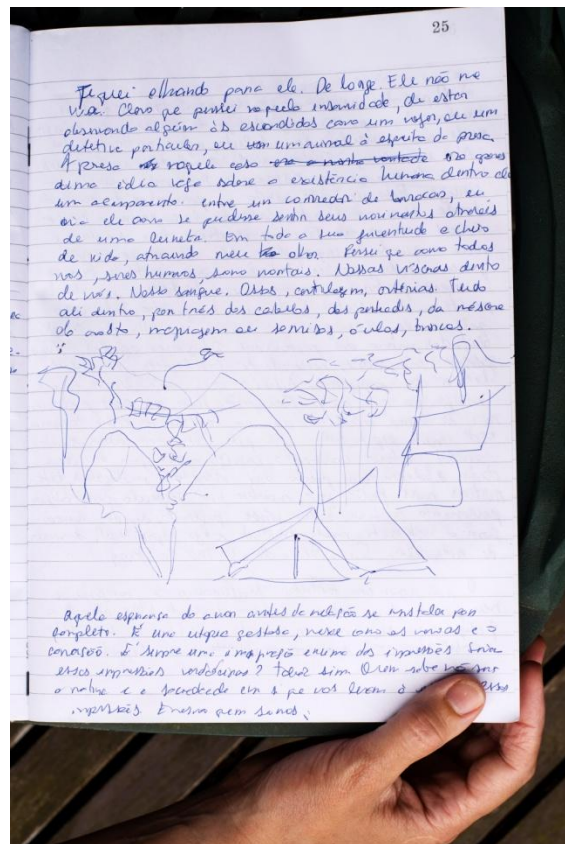 25
Fiquei olhando para ele. De longe. Ele não me
via. Claro que pensei naquela insanidade, de estar
observando alguém às escondidas como um voyer, ou um
detetive particular, ou um animal à espreita da presa.
A presa naquele caso era a minha vontade
duma idéia vaga sobre a existência humana dentro de
um acampamento. entre um corredor de barracas, eu
via ele como se pudesse sentir seus movimentos através
de uma luneta. Em toda a sua juventude e cheio
de vida, atraindo meu olhar. Pensei que como todos
nós, seres humanos, somos mortais. Nossas vísceras dentro
de nós. Nosso sangue. Ossos, cartilagem, artérias. Tudo
ali dentro, por trás dos cabelos, dos penteados, da máscara
do rosto, maquiagem ou sorrisos, óculos, brincos.
aquela esperança do amor antes da relação se instalar por
completo. É uma utopia gostosa, mexe com os nervos e o
coração. É sempre uma impressão enorme das impressões. Seria
essas impressões verdadeiras? Talvez sim. Quem sabe não
a nature e a sociedade em que nos levam
impressões. Enema quem somos.